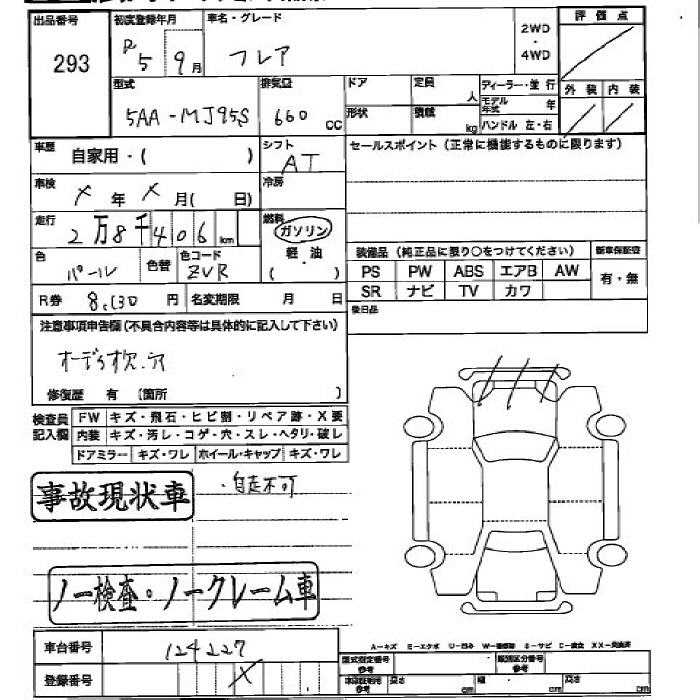 出品番号 初度登録年月 車名・グレード 2WD・4WD 評価点
293 R5 9月 フレア
型式 排気量 ドア 定員 人 ディーラー・並行 外装 内装
5AA-MJ95S 660 cc 形状 積載 kg モデル年式 年 ハンドル 左・右
車歴 自家用・( ) シフト AT セールスポイント(正常に機能するものに限ります)
車検 X年X月( 日) 冷房
走行 2万8千406km 燃料 ガソリン 軽・油 ( )
色 パール 色替 色コード ZVR
装備品(純正品に限り○をつけてください) 新車保証書
PS PW ABS エアB AW 有・無
SR ナビ TV カワ
R券 8,130円 名変期限 月 日 後日品
注意事項申告欄(不具合内容等は具体的に記入して下さい)
オーディオ欠.穴
修復歴 有 (箇所 )
検査員記入欄 FW キズ・飛石・ヒビ割・リペア跡・X要
内装 キズ・汚レ・コゲ・穴・スレ・ヘタリ・破レ
ドアミラー キズ・ワレ ホイール・キャップ キズ・ワレ
事故現状車 ・自走不可
ノー検査・ノークレーム車
車台番号 124227
登録番号 X
A-キズ E-エクボ U-凹み S-サビ
型式指定番号 参考 類別区分番号 参考
参考 長さ cm 幅 cm 高さ cm